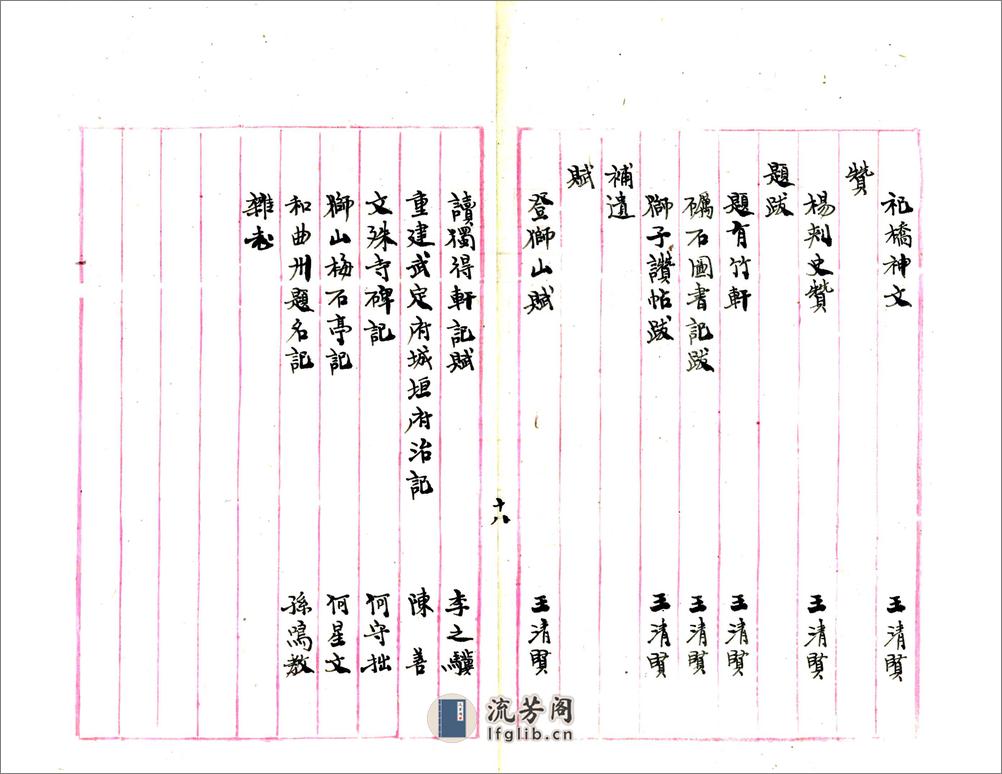 祀橋神文 王清賢
贊
楊刺史贊 王清賢
題跋
題有竹軒 王清賢
礪石圖書記跋 王清賢
獅子讚帖跋 王清賢
補遺
賦
登獅山賦 王清賢
十八
讀獨得軒記賦 李之驥
重建武定府城垣府治記 陳善
文殊寺碑記 何守拙
獅山梅石亭記 何星文
和曲州題名記 孫鳴教
雜志
流芳阁
lfglib.cn